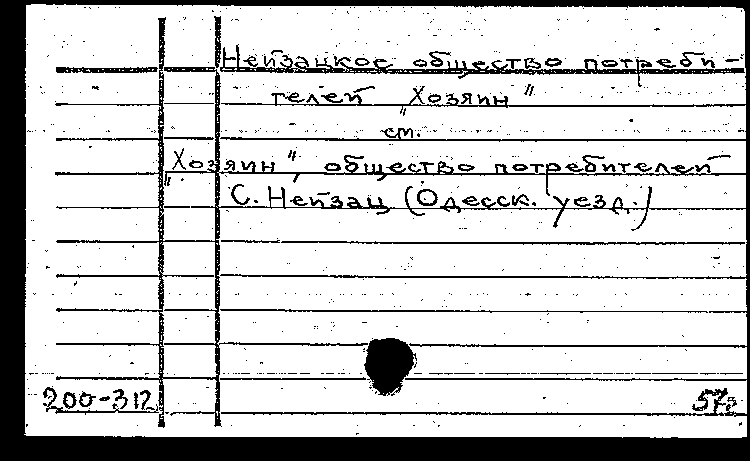 Нейзацкое общество потреби-
телей „Хозяин"
см.
„Хозяин", общество потребителей
С. Нейзац (Одесск. уезд.)
200-312